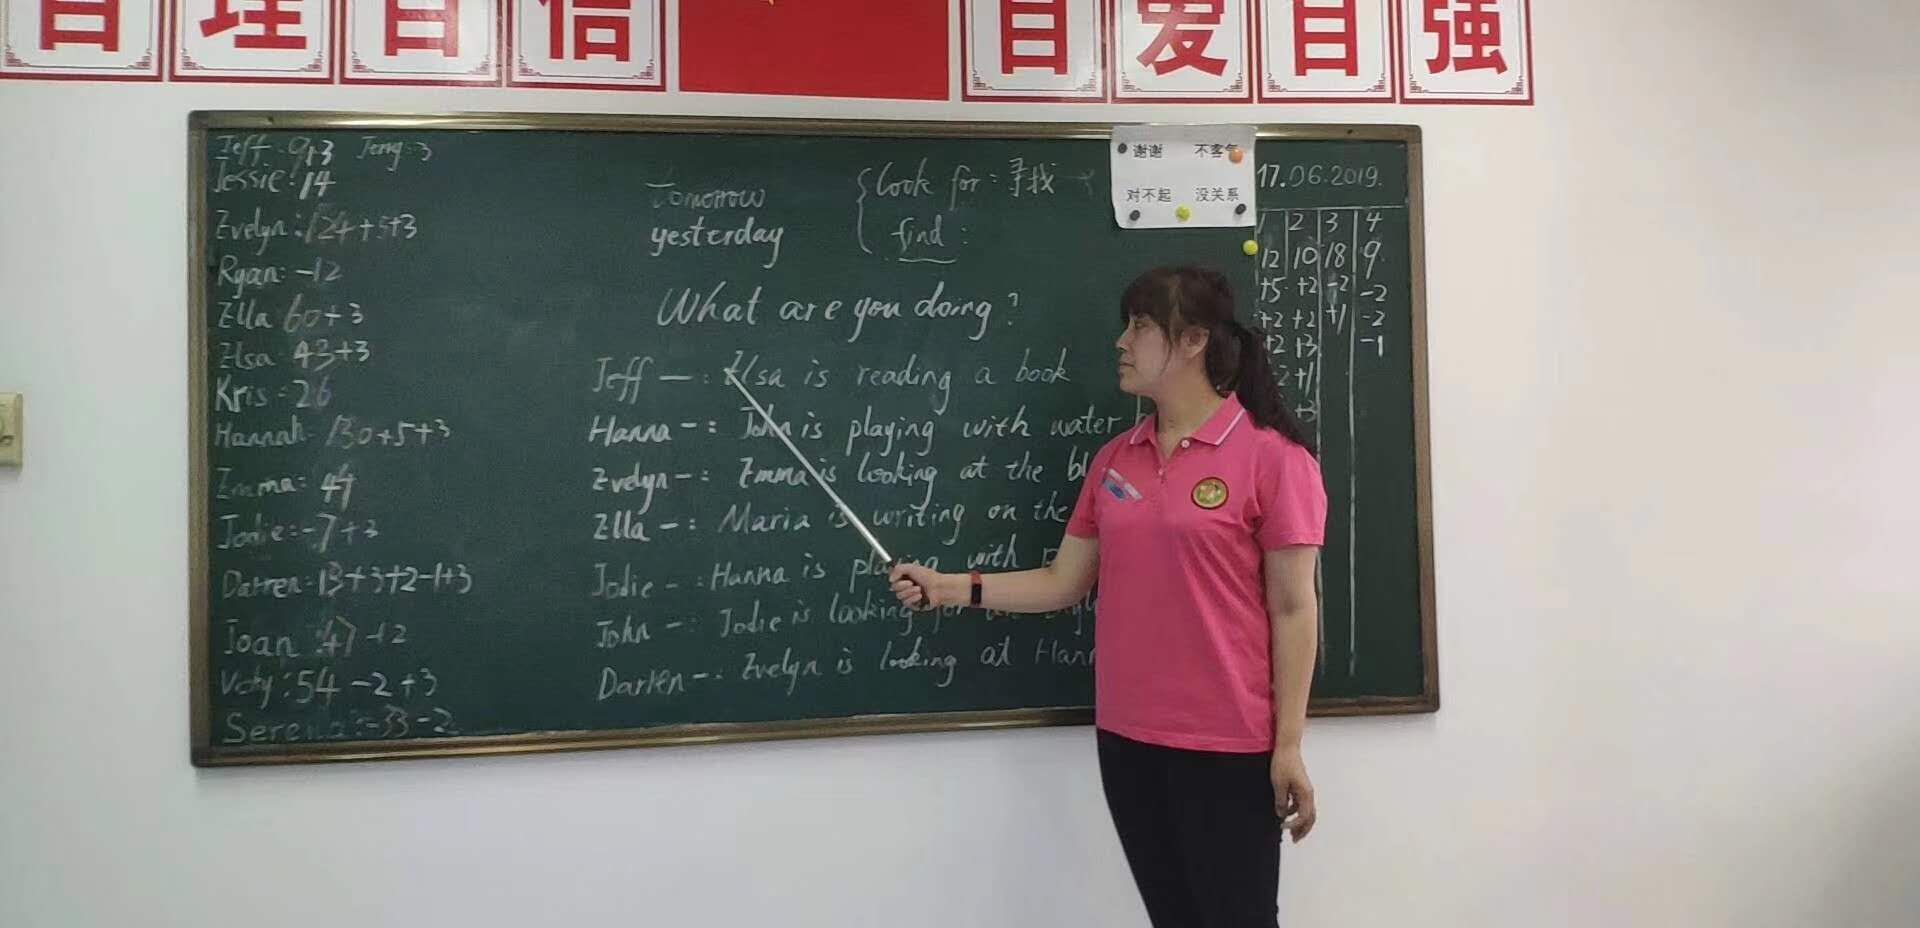 自 理 自 信 自 爱 自 强
Jeff: 9+3 Jeng: 3
Jessie: 14
Evelyn: 124+5+3
Ryan: -12
Ella 60+3
Elsa 43+3
Kris: 26
Hannah: 130+5+3
Emma: 44
Jodie: -7+3
Darren: 13+3+2-1+3
Joan: 47+2
Vicky: 54-2+3
Serena: -33-2
Tomorrow
yesterday
look for: 寻找
find:
What are you doing?
Jeff —: Elsa is reading a book
Hanna —: John is playing with water
Evelyn —: Emma is looking at the
Ella —: Maria is writing on the
Jodie —: Hanna is playing with
John —: Jodie is looking for
Darren —: Evelyn is looking at
谢谢 不客气
对不起 没关系
17.06.2019.
1 2 3 4
12 10 18 9
+5 +2 -2 -2
+2 +2 +1 -2
+2 +3 -1
+1
+3